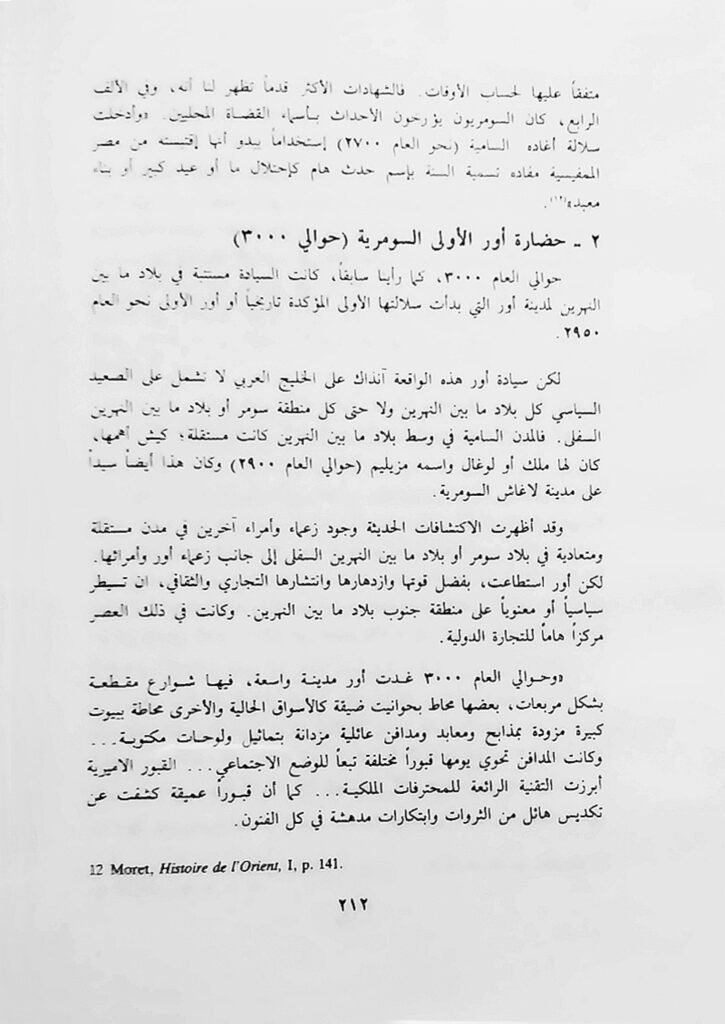 متفقاً عليها لحساب الأوقات. فالشهادات الأكثر قدماً تظهر لنا أنه، وفي الألف
الرابع، كان السومريون يؤرخون الأحداث بأسماء القضاة المحليين. «وأدخلت
سلالة أغاده السامية (نحو العام ٢٧٠٠) إستخداماً يبدو أنها إقتبسته من مصر
الممفيسية مفاده تسمية السنة بإسم حدث هام كإحتلال ما أو عيد كبير أو بناء
معبد»(١٢).
٢ ـ حضارة أور الأولى السومرية (حوالي ٣٠٠٠)
حوالي العام ٣٠٠٠، كما رأينا سابقاً، كانت السيادة مستتبة في بلاد ما بين
النهرين لمدينة أور التي بدأت سلالتها الأولى المؤكدة تاريخياً أو أور الأولى نحو العام
٢٩٥٠.
لكن سيادة أور هذه الواقعة آنذاك على الخليج العربي لا تشمل على الصعيد
السياسي كل بلاد ما بين النهرين ولا حتى كل منطقة سومر أو بلاد ما بين النهرين
السفلى. فالمدن السامية في وسط بلاد ما بين النهرين كانت مستقلة؛ كيش أهمها،
كان لها ملك أو لوغال واسمه مزيليم (حوالي العام ٢٩٠٠) وكان هذا أيضاً سيداً
على مدينة لاغاش السومرية.
وقد أظهرت الاكتشافات الحديثة وجود زعماء وأمراء آخرين في مدن مستقلة
ومتعادية في بلاد سومر أو بلاد ما بين النهرين السفلى إلى جانب زعماء أور وأمرائها.
لكن أور استطاعت، بفضل قوتها وازدهارها وانتشارها التجاري والثقافي، ان تسيطر
سياسياً أو معنوياً على منطقة جنوب بلاد ما بين النهرين. وكانت في ذلك العصر
مركزاً هاماً للتجارة الدولية.
«وحوالي العام ٣٠٠٠ غدت أور مدينة واسعة، فيها شوارع مقطعة
بشكل مربعات، بعضها محاط بحوانيت ضيقة كالأسواق الحالية والأخرى محاطة ببيوت
كبيرة مزودة بمذابح ومعابد ومدافن عائلية مزدانة بتماثيل ولوحات مكتوبة...
وكانت المدافن تحوي يومها قبوراً مختلفة تبعاً للوضع الاجتماعي... القبور الاميرية
أبرزت التقنية الرائعة للمحترفات الملكية... كما أن قبوراً عميقة كشفت عن
تكديس هائل من الثروات وابتكارات مدهشة في كل الفنون.
12 Moret, Histoire de l'Orient, I, p. 141.
٢١٢